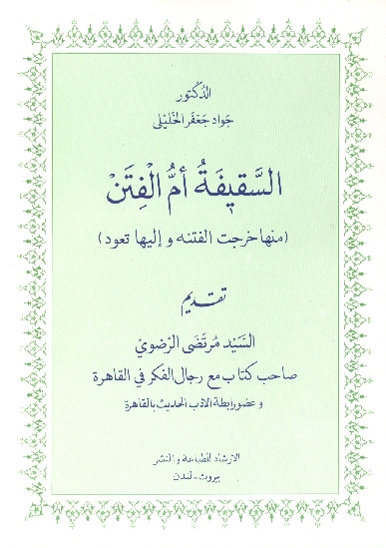 الدكتور
جواد جعفر الخليلي
السَّقيفَةُ أمُّ الْفِتَنْ
(منها خرجت الفتنه و إليها تعود)
تقديم
السَّيد مرتَضى الرضويّ
صاحب كتاب مع رجال الفكر في القاهرة
وعضو رابطة الأدب الحديث بالقاهرة
الارشاد للطباعة والنشر
بيروت - لندن